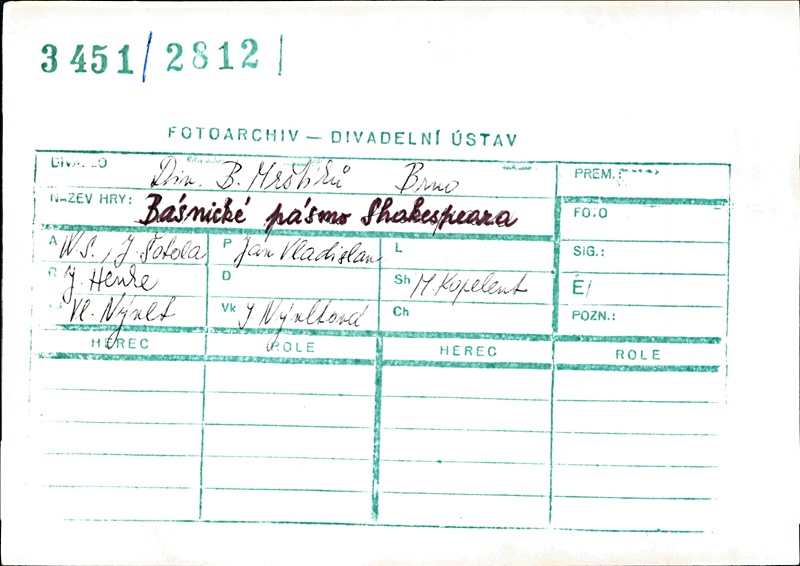 3451/2812
FOTOARCHIV — DIVADELNÍ ÚSTAV
DIVADLO Div. B. Mrštíků Brno PREM.:
NÁZEV HRY: Básnické pásmo Shakespeara FOTO
A W. S., J. Šotola P Jan Vladislav L SIG.:
R J. Henke D Sh M. Kopelent Č/
Vl. Nývlt Vk J Nývltová Ch POZN.:
HEREC ROLE HEREC ROLE